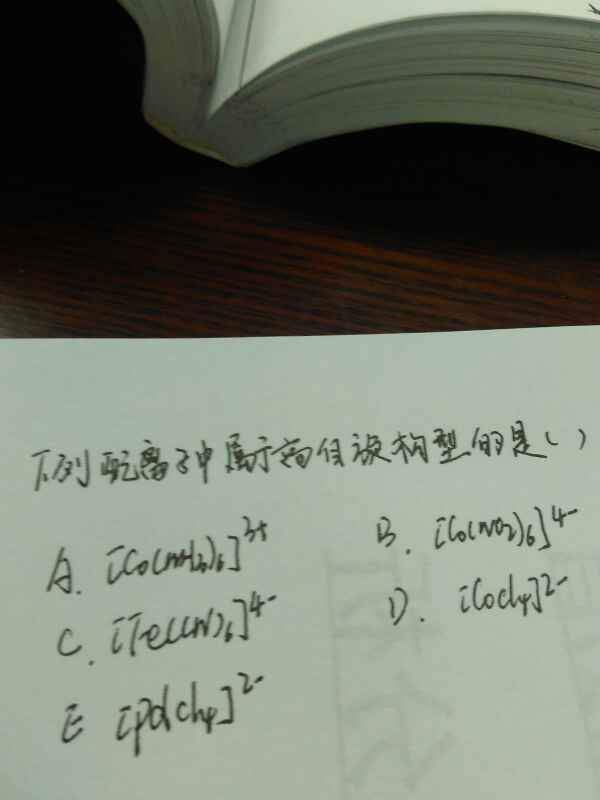 下列配离子中属于高自旋构型的是( )
A. [Co(NH3)6]3+ B. [Co(NO2)6]4-
C. [Fe(CN)6]4- D. [CoCl4]2-
E [PdCl4]2-